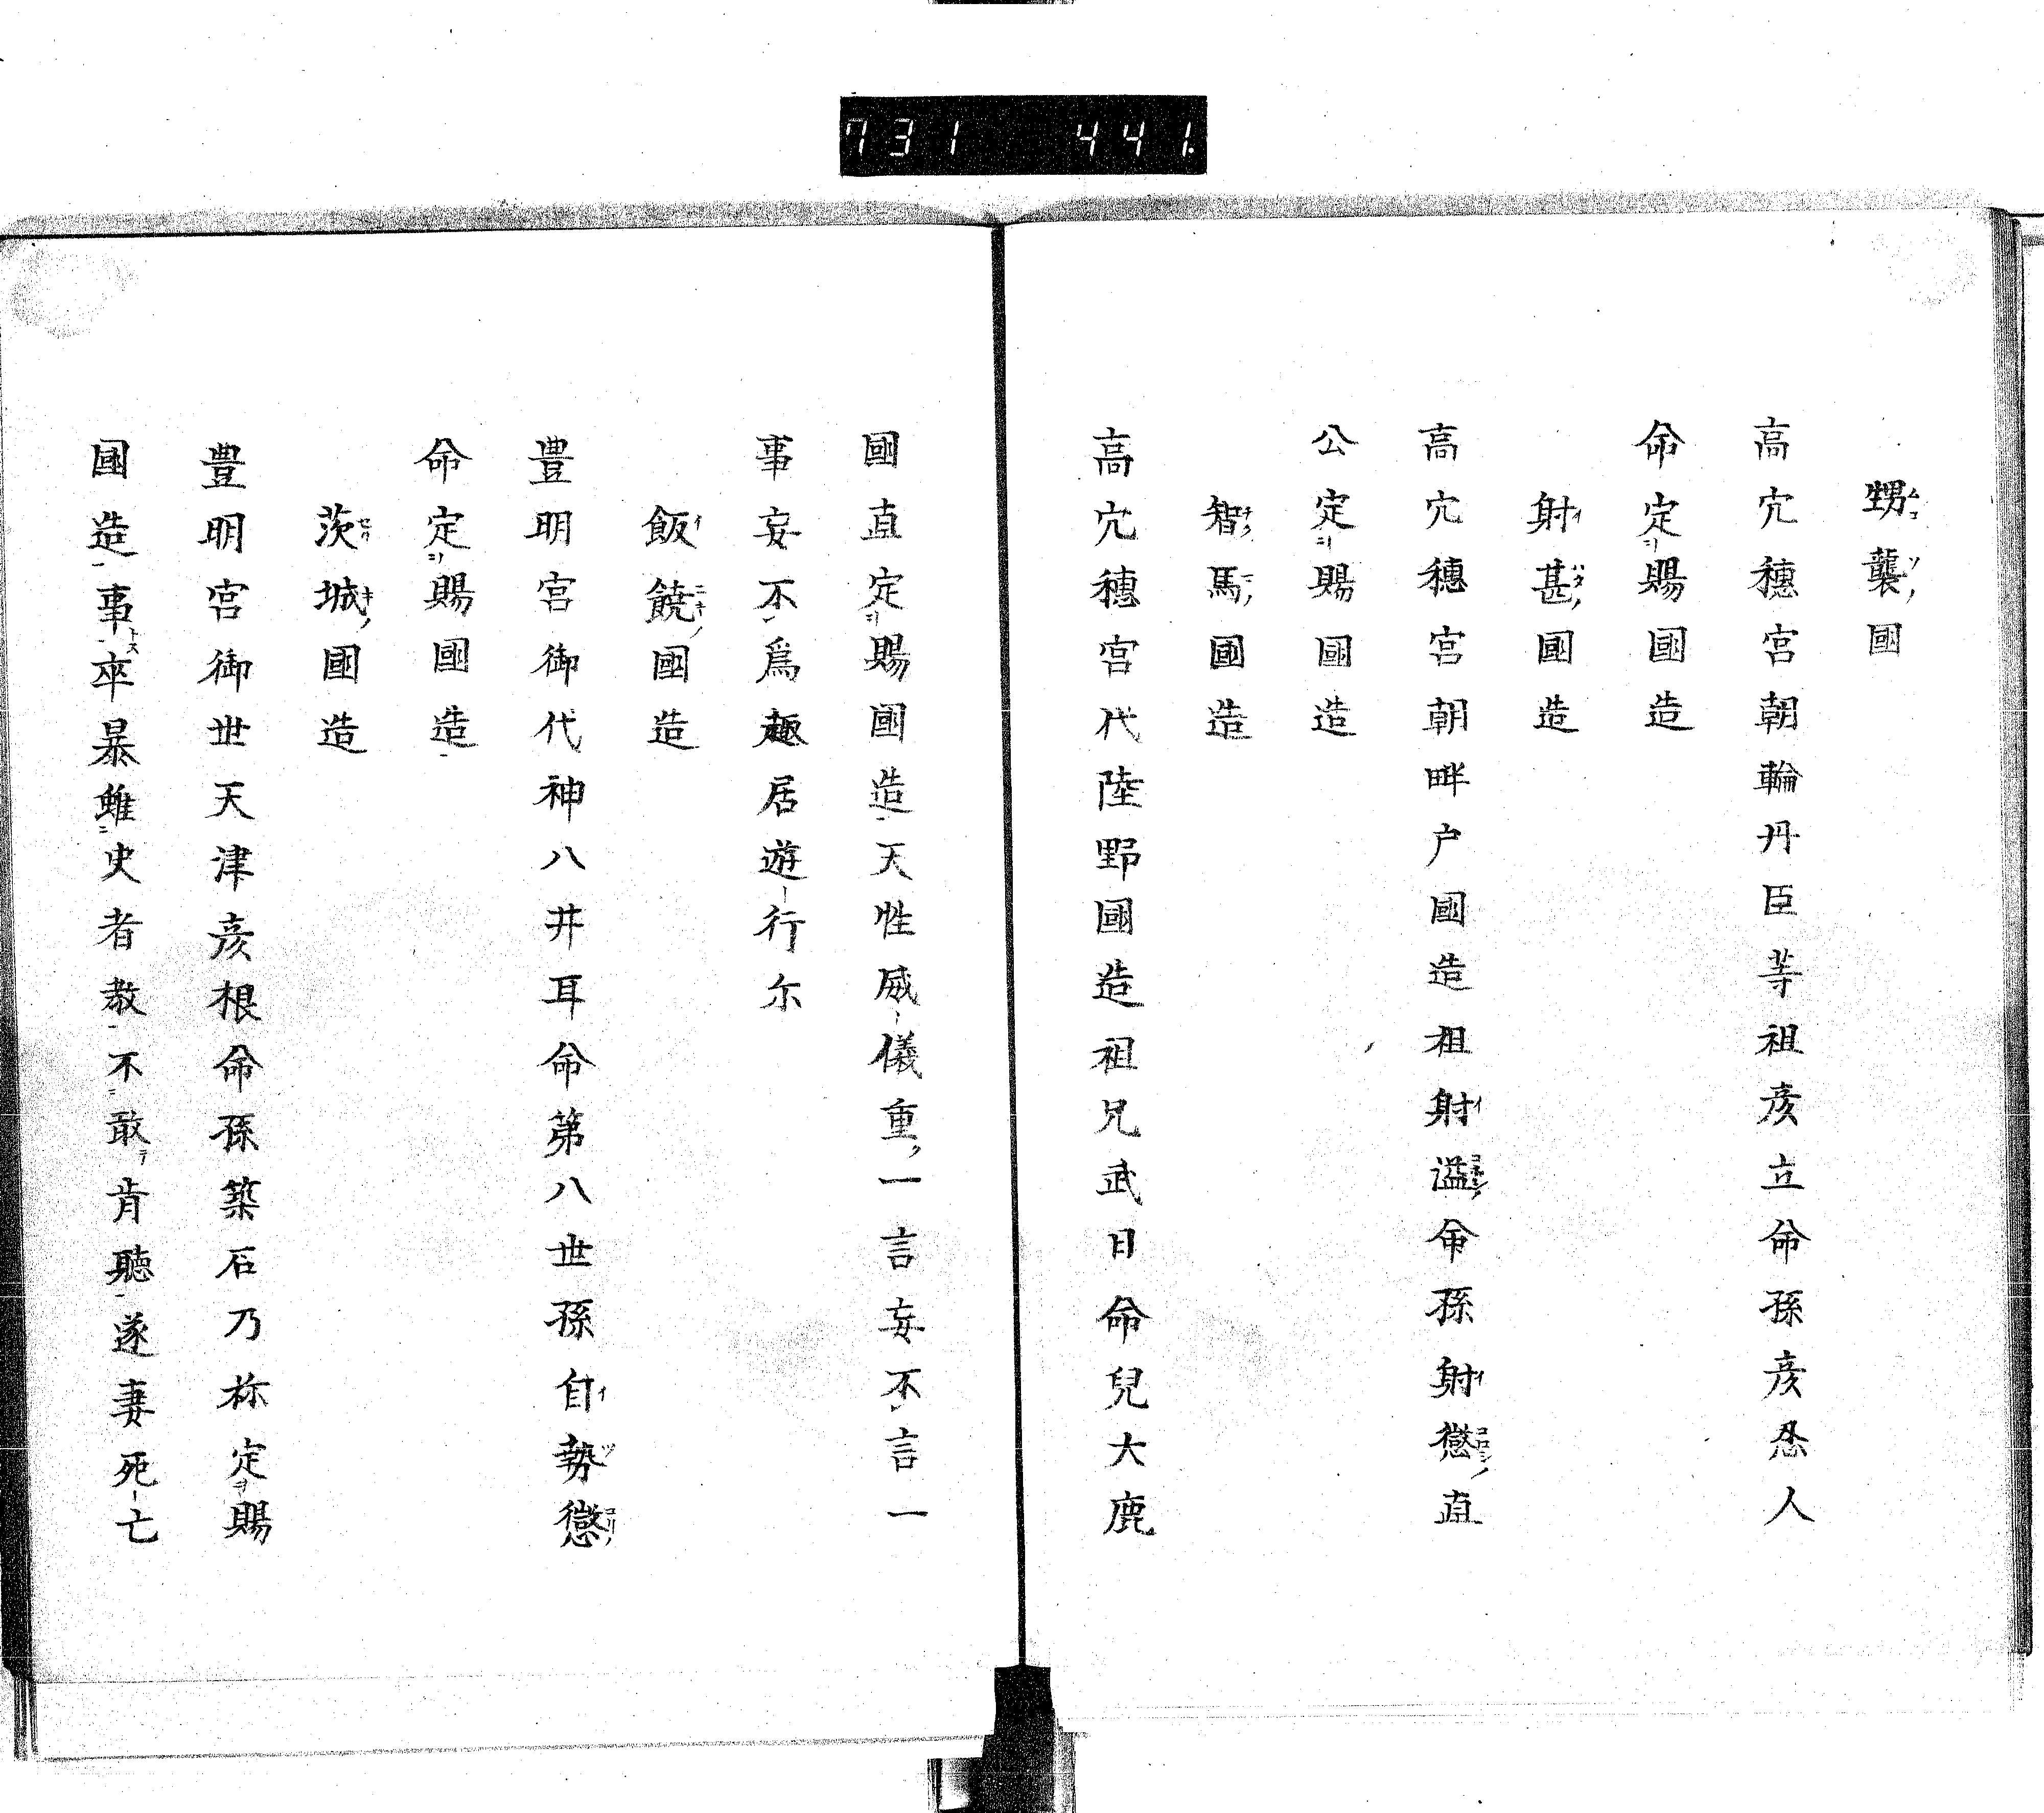 731 441
甥襲國
高穴穗宮朝輪丹臣等祖彦立命孫彦忍人
命定賜國造
射甚國造
高穴穗宮朝畔戸國造祖射溢命孫射懲直
公定賜國造
智馬國造
高穴穗宮代陸野國造祖兄武日命兒大鹿
國直定賜國造天性威儀重一言妄不言一
事妄不爲趣居遊行尓
飯饒國造
豊明宮御代神八井耳命第八世孫自勢懲
命定賜國造
茨城國造
豊明宮御世天津彦根命孫築石乃祢定賜
國造事卒暴雖史者教不敢肯聽遂妻死亡